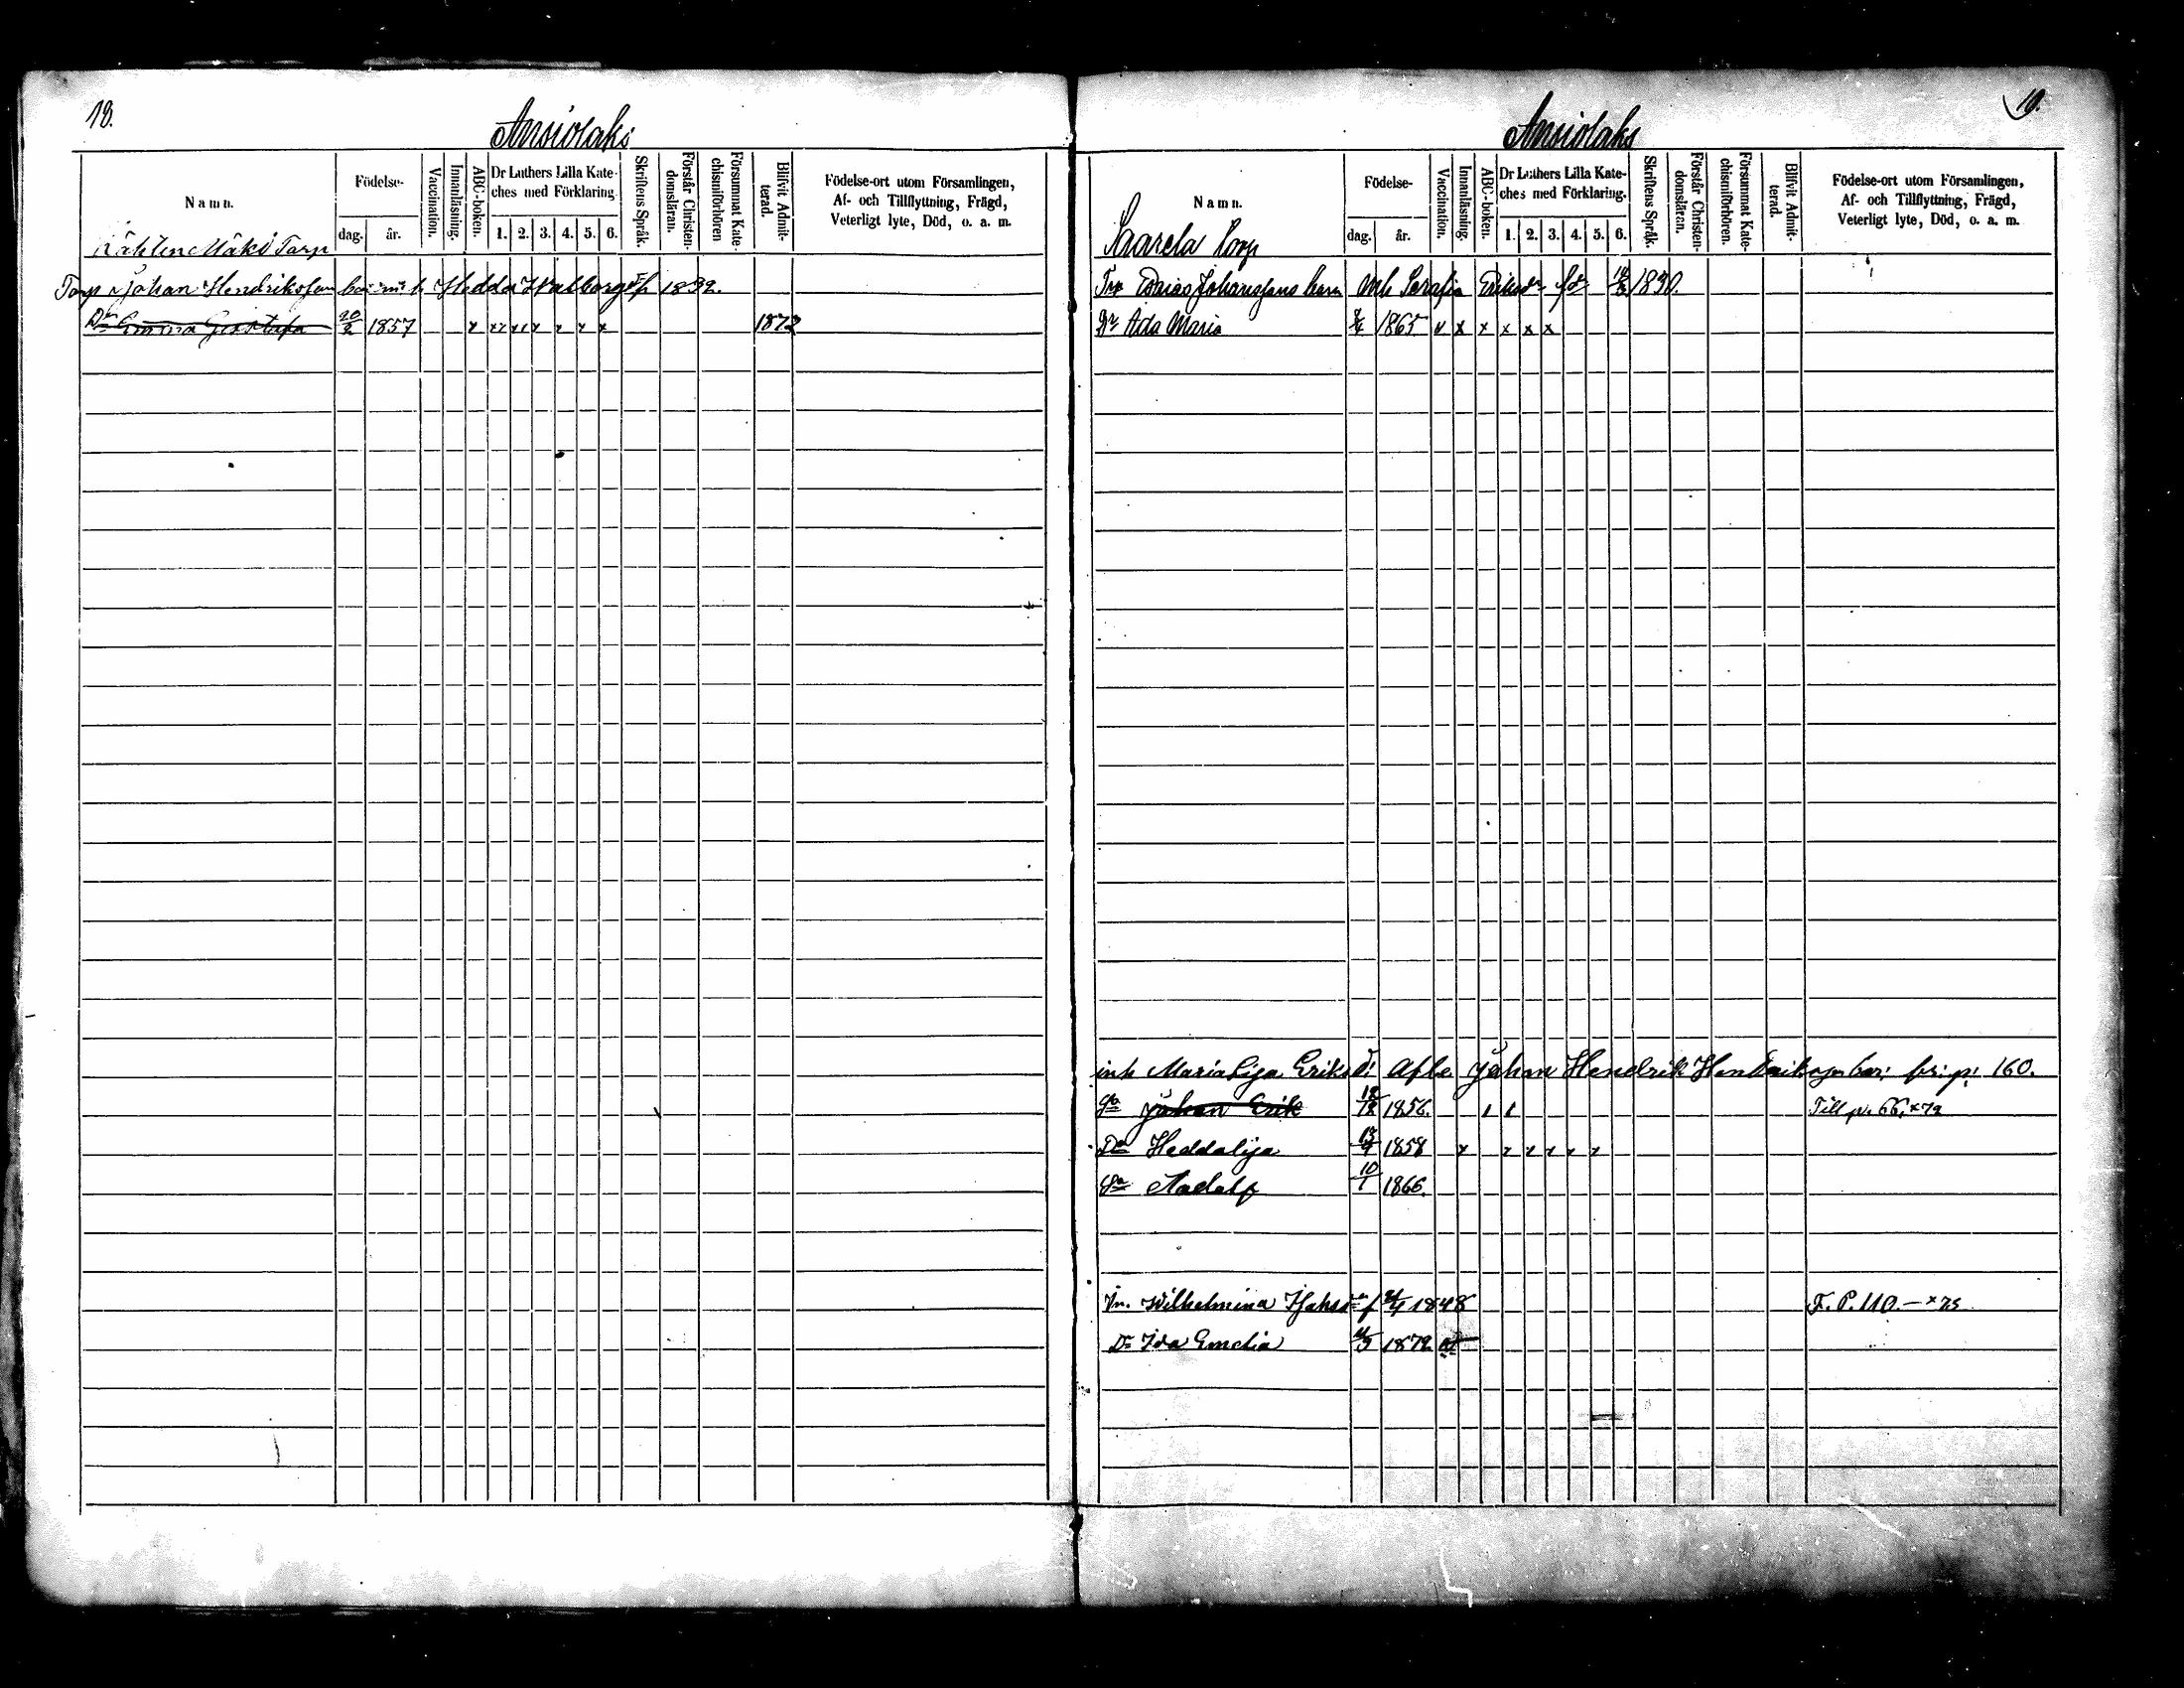 18.
Ansiolaks
Namn.
Födelse-
dag.
år.
Vaccination.
Innanläsning.
ABC-boken.
Dr Luthers Lilla Kate-
ches med Förklaring.
1. 2. 3. 4. 5. 6.
Skriftens Språk.
Förstår Christen-
domsläran.
Försummat Kate-
chismiförhören
Blifvit Admit-
terad.
Födelse-ort utom Församlingen,
Af- och Tillflyttning, Frägd,
Veterligt lyte, Död, o. a. m.
Mäki Torp
Torp Johan Hendriksson bar: m: h Hedda Walborg f 1832.
Dr Emma Gustafa 20/2 1857 x x x x x x x 1872
19.
Ansiolaks
Namn.
Födelse-
dag.
år.
Vaccination.
Innanläsning.
ABC-boken.
Dr Luthers Lilla Kate-
ches med Förklaring.
1. 2. 3. 4. 5. 6.
Skriftens Språk.
Förstår Christen-
domsläran.
Försummat Kate-
chismiförhören.
Blifvit Admit-
terad.
Födelse-ort utom Församlingen,
Af- och Tillflyttning, Frägd,
Veterligt lyte, Död, o. a. m.
Saarela Torp
Esaias Johanssons barn Serafia Eriksdr 1830.
Dr Ada Maria 1865 x x x x x x
inh Maria Lisa Eriks d: Afle Johan Hendrik Hendriksson bar: fr: p: 160.
So Johan Erik 18/12 1856. Till p. 66, x 72
Dr Hedda Lisa 13/9 1858 x x x x x x
So Aadolf 10/1 1866.
In. Wilhelmina f 1848 F. P. 110. — x 75
Dr Ida Emelia 1872